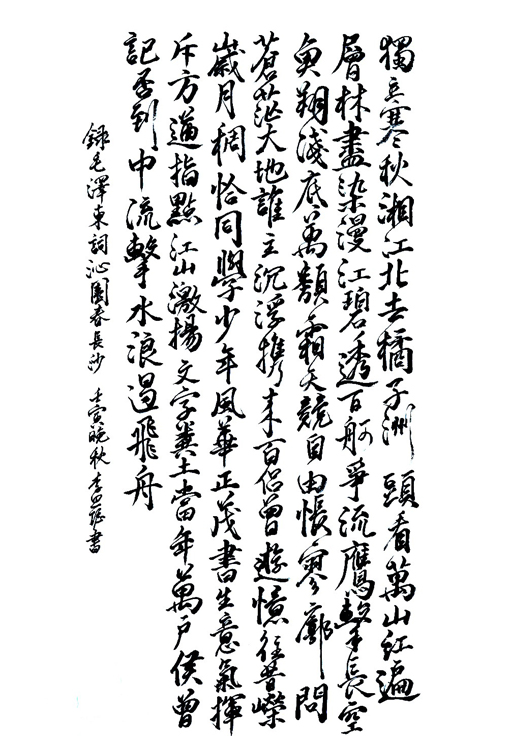 獨立寒秋湘江北去橘子洲頭看萬山紅遍
層林盡染漫江碧透百舸爭流鷹擊長空
魚翔淺底萬類霜天競自由悵寥廓問
蒼茫大地誰主沉浮携來百侶曾遊憶往昔嶸
歲月稠恰同學少年風華正茂書生意氣揮
斥方遒指點江山激揚文字糞土當年萬戶侯曾
記否到中流擊水浪遏飛舟
錄毛澤東詞沁園春長沙 壬寅晚秋李書